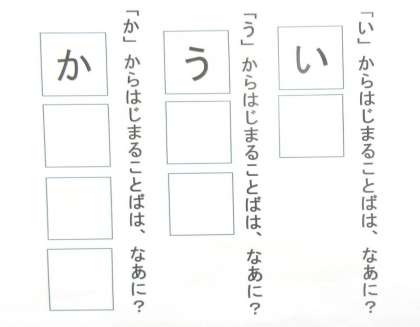 「い」からはじまることばは、なあに?
い
「う」からはじまることばは、なあに?
う
「か」からはじまることばは、なあに?
か